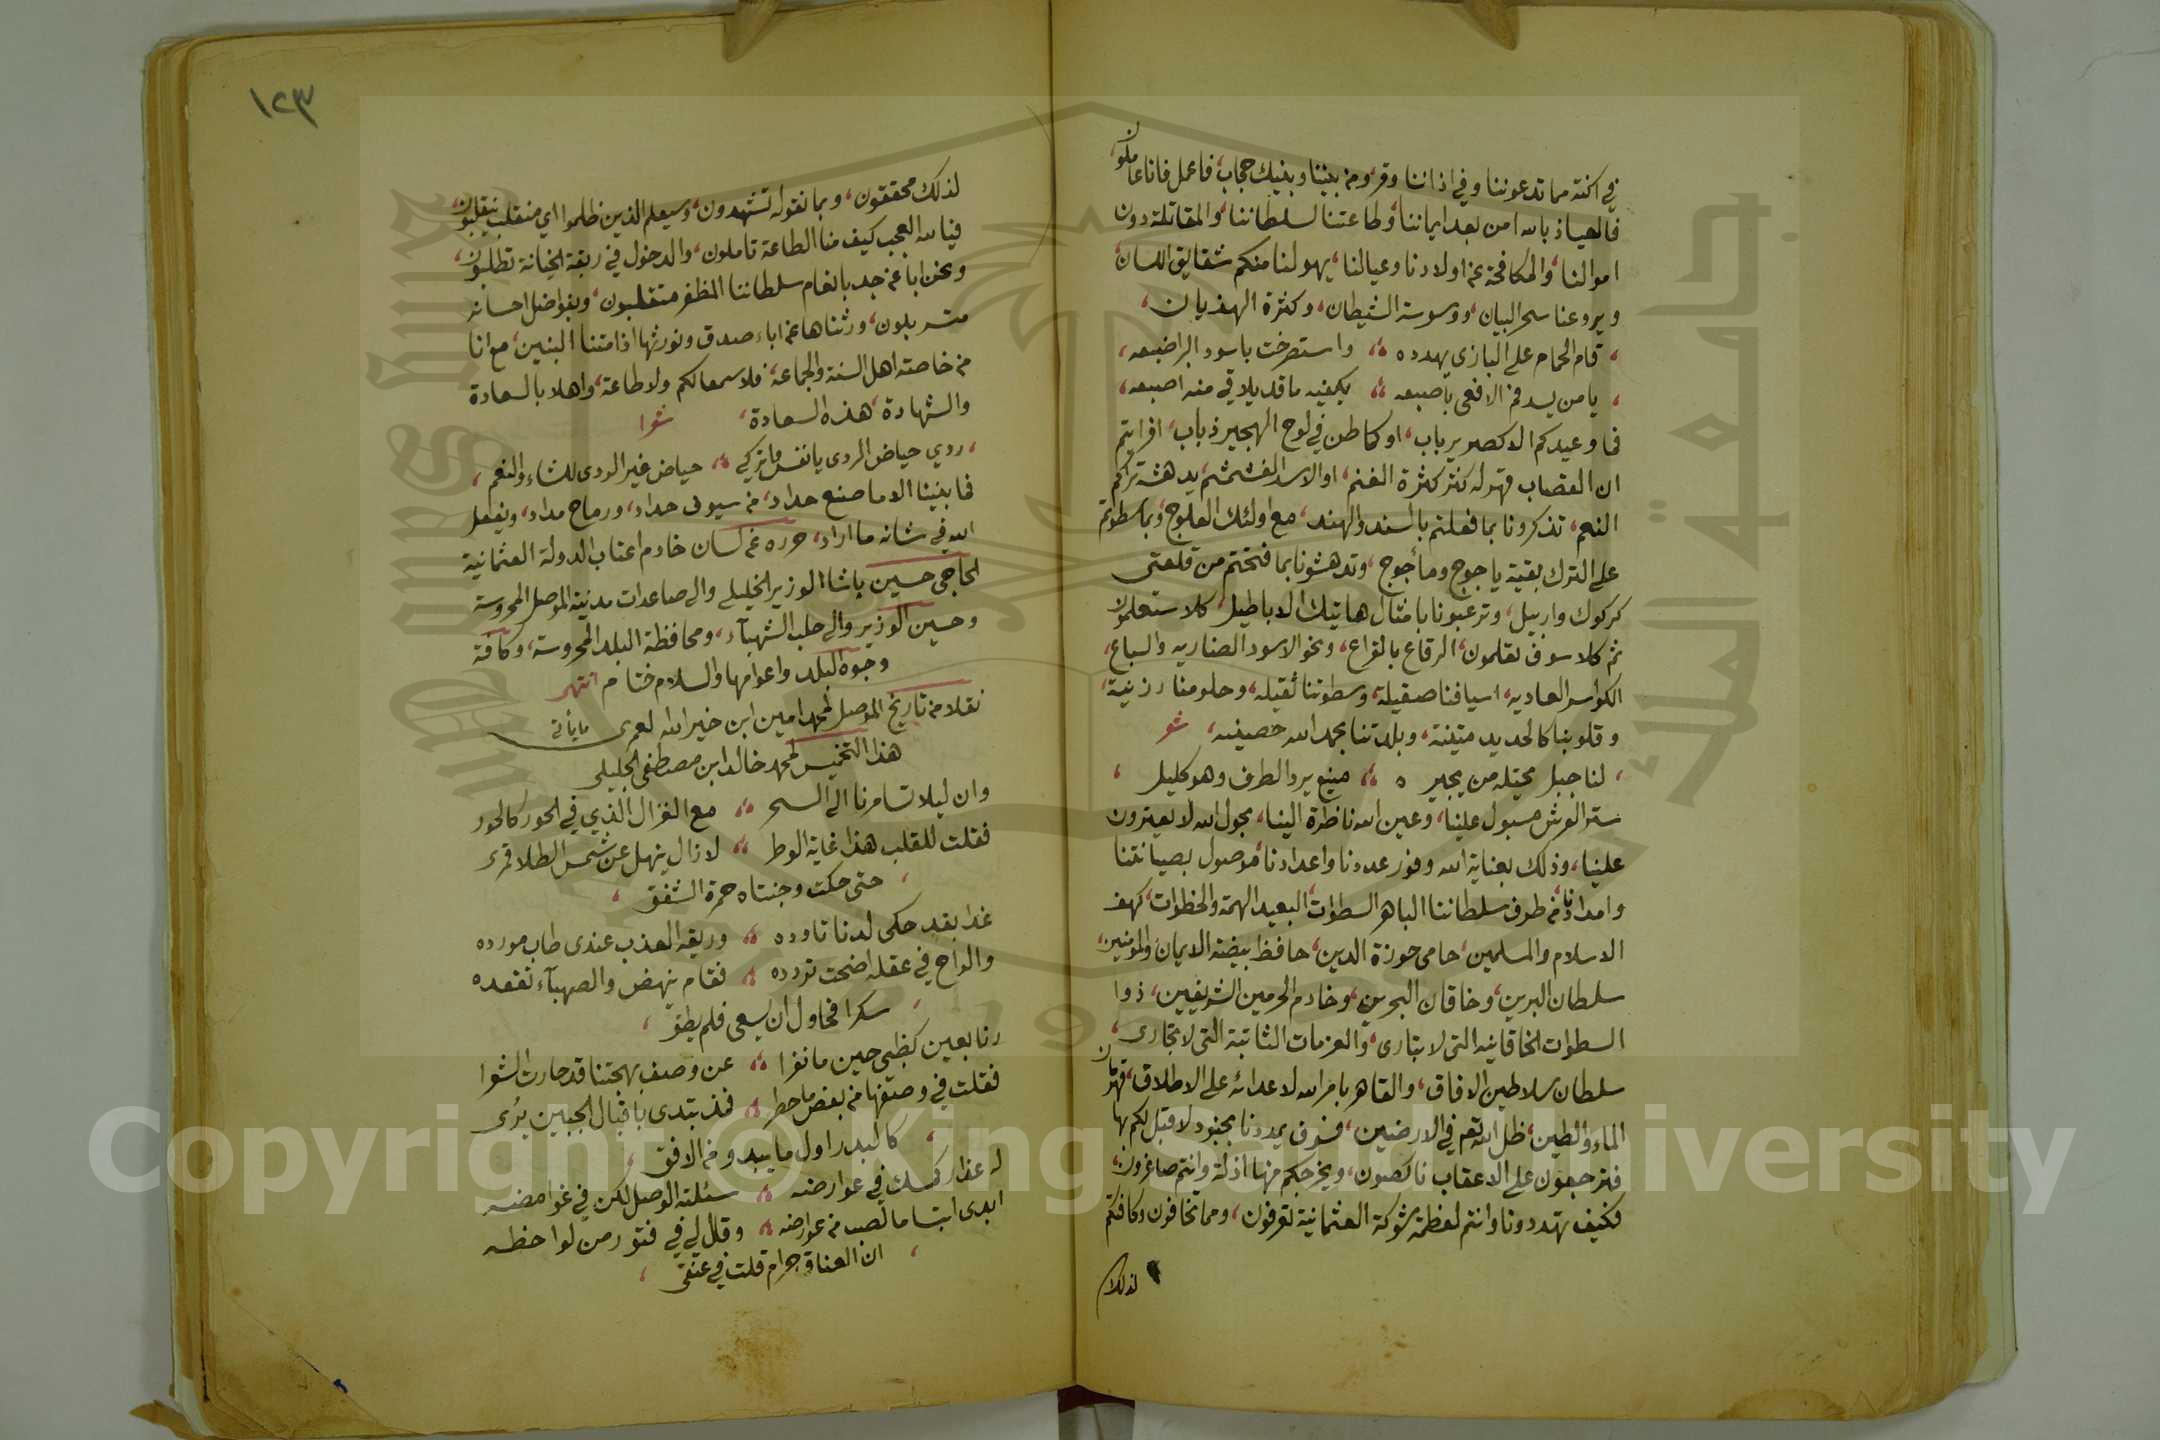 في اكنة مما تدعوننا وفي اذاننا وقر، ومن بيننا وبينك حجاب، فاعمل فاننا عاملون
فالعياذ بالله امن بعد ايماننا، وطاعتنا لسلطاننا، والمقاتلة دون
اموالنا، والمكافحة عن اولادنا وعيالنا، يهولنا منكم شقايق اللسان،
ويروعنا سحر البيان، ووسوسة الشيطان، وكثرة الهذيان،
قام الحمام على البازى يهدده واستصرخت باسود البر اضبعه،
يا من يسد فم الافعى باصبعه يكفيه ما قد يلاقي منه اصبعه،
فما وعيدكم الا كصرير باب، او كما طن في لوح الهجير ذباب، افرايتم
ان القصاب تهوله كثر كثرة الغنم، او الاسد الغشمشم يدهشه تراكم
النعم، تذكرونا بما فعلتم بالسند والهند، مع اولئك العلوج، وبما سطوتم
على الترك بقية ياجوج ومأجوج، وتدهشونا بما فتحتم من قلعتى
كركوك واربيل، وترعبونا بامثال هاتيك الاباطيل، كلا ستعلمون
ثم كلا سوف تعلمون، الرقاع بالقراع، ونحو الاسود الضاريه والسباع،
الكواسر العاديه، اسيافنا صقيلة، وسطوتنا ثقيله، وحلومنا رزينة،
وقلوبنا كالحديد متينة، وبلدتنا بحمد الله حصينه، شعر
لنا جبل يحتله من يجيره منيع يرد الطرف وهو كليل
ستر العرش مسبول علينا، وعين الله ناظرة الينا، بحول الله لا يقدرون
علينا، وذلك بعناية الله ووفور عددنا واعدادنا، موصول بصيانتنا
وامدادنا، من طرف سلطاننا الباهر السطوات، البعيد الهمة والخطوات، كهف
الاسلام والمسلمين، حامى حوزة الدين، حافظ بيضة الايمان والمؤمنين،
سلطان البرين، وخاقان البحرين، وخادم الحرمين الشريفين، ذوا
السطوات الخاقانيه التى لا تبارى، والعزمات الثابتة التى لا تجارى،
سلطان سلاطين الافاق، والقاهر بامر الله لاعدائه على الاطلاق، قهرمان
الماء والطين، ظل الله تعم في الارضين، فسوف يمددنا بجنود لا قبل لكم بها
فترجعون على الاعقاب ناكصون، ويخرجكم منها اذلة وانتم صاغرون،
فكيف تهددونا وانتم لعظمة شوكة العثمانية تعرفون، ومما تخافون وكافتكم
لذلك
١٢٣
لذلك محققون، وبما نقوله تشهدون، وسيعلم الذين ظلموا اي منقلب ينقلبون،
فيا لله العجب كيف منا الطاعة تاملون، والدخول في ربقة الخيانة تطلبون،
ونحن ابا عن جد بانعام سلطاننا المظفر متقلبون، وبفواضل احسانه
متسربلون، ورثناها عن اباء صدق ونورثها اذا متنا البنين، مع انا
من خاصته اهل السنة والجماعة، فلا سمعا لكم ولا طاعة، واهلا بالسعادة
والشهادة، هذه السعادة، شعرا
ردي حياض الردى يا نفس واتركي حياض غير الردى للشاء والنعم،
فما بيننا الا ما صنع حداد، من سيوف حداد، ورماح مداد، ويفعل
الله في شانه ما اراد، حرره عن لسان خادم اعتاب الدولة العثمانية
الحاجى حسين پاشا الوزير الخليلي والى صاعدات مدينة الموصل المحروسة
وحسين الوزير والى حلب الشهبآء، ومحافظة البلد المحروسة، وكافة
وجوه البلد واعوامها والسلام ختام انتهى
نقلا من تاريخ الموصل لمحمد امين ابن خير الله لعمرى ما يأتى
هذا التخميس لمحمد خالد ابن مصطفى الجليلى
وان ليلا تسامرنا الى السحر مع الغزال الذي في الحور كالحور
فقلت للقلب هذا غاية الوطر لازال ينهل عن شمس الطلا قمرى
حتى حكت وجنتاه حمرة الشفق
غدا بقد حكى لدنا تاوده وريقه العذب عندى طاب مورده
والراح في عقله اضحت تردده فقام ينهض والصهبآء تقعده
سكرا فحاول ان يسعى فلم يطق
رنا بعين كظبي حين ما نفرا عن وصف بهجتنا قد حارت الشعرا
فقلت في وصفها من بعض ما خطر فذ بتدى باقبال الجبين يرى
كالبدر اول ما يبدو من الافق
له عذار كمسك في عوارضه سئلته الوصل لكن في غوامضه
ابدى ابتساما لصب من عوارضه وقال لي في فتور من لواحظه
ان العناق حرام قلت في عنقى